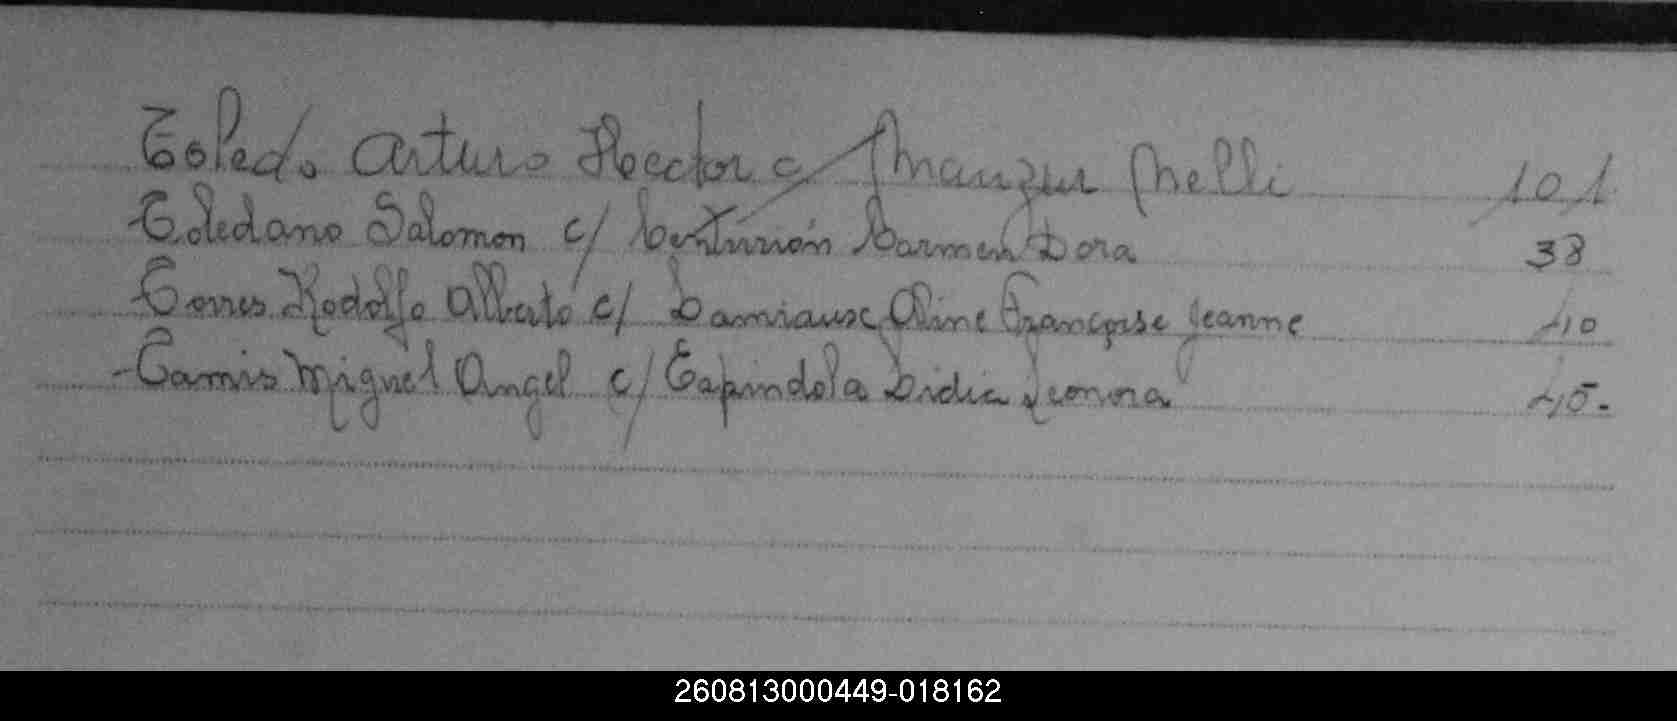 Toledo Arturo Hector c/ Manzur Nelli 101
Toledano Salomon c/ Centurión Carmen Dora 38
Torres Rodolfo Alberto c/ Damiause Aline Françoise Jeanne 110
Tamis Miguel Angel c/ Espindola Lidia Leonora 115.
260813000449-018162